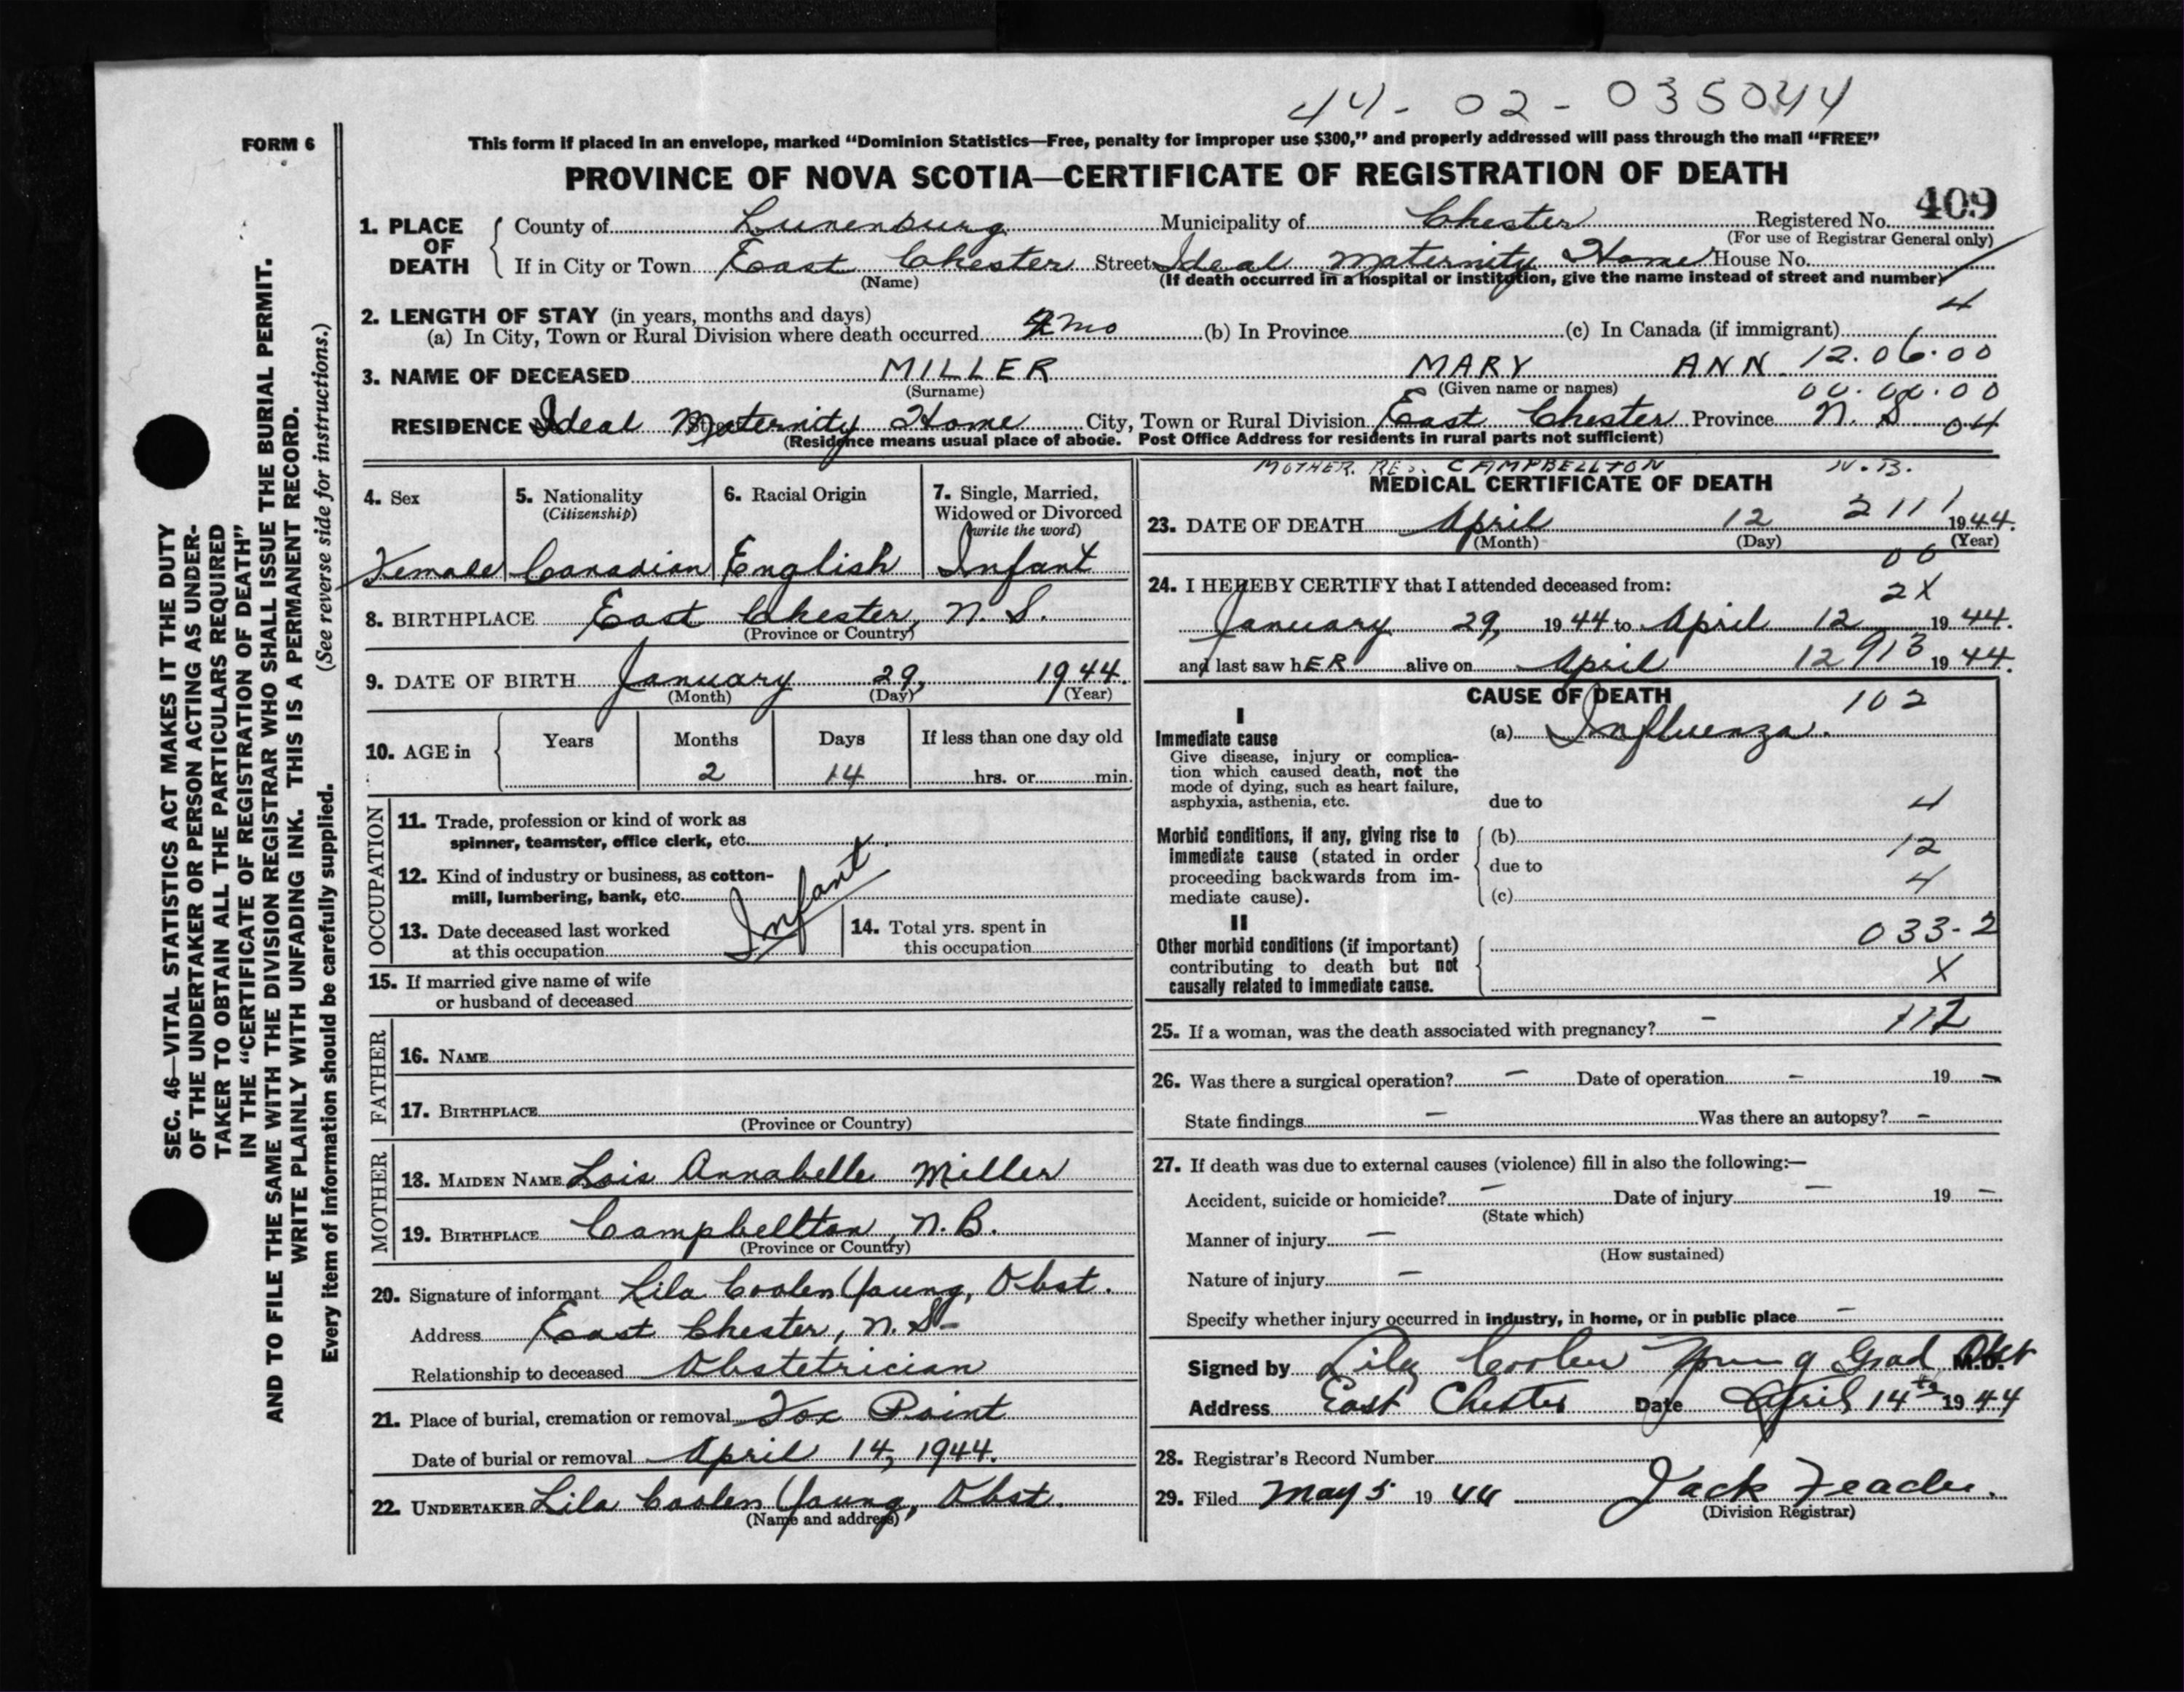 44-02-035044
FORM 6
This form if placed in an envelope, marked “Dominion Statistics—Free, penalty for improper use $300,” and properly addressed will pass through the mail “FREE”
PROVINCE OF NOVA SCOTIA—CERTIFICATE OF REGISTRATION OF DEATH
409
1. PLACE OF DEATH { County of Lunenburg Municipality of Chester Registered No.
(For use of Registrar General only)
If in City or Town East Chester Street Ideal Maternity Home House No.
(Name) (If death occurred in a hospital or institution, give the name instead of street and number)
4
2. LENGTH OF STAY (in years, months and days)
(a) In City, Town or Rural Division where death occurred mo (b) In Province (c) In Canada (if immigrant)
3. NAME OF DECEASED MILLER MARY ANN 12.06.00
(Surname) (Given name or names) 00.00.00
RESIDENCE Ideal Maternity Home City, Town or Rural Division East Chester Province N. S 04
(Residence means usual place of abode. Post Office Address for residents in rural parts not sufficient)
SEC. 46—VITAL STATISTICS ACT MAKES IT THE DUTY
OF THE UNDERTAKER OR PERSON ACTING AS UNDER-
TAKER TO OBTAIN ALL THE PARTICULARS REQUIRED
IN THE “CERTIFICATE OF REGISTRATION OF DEATH”
AND TO FILE THE SAME WITH THE DIVISION REGISTRAR WHO SHALL ISSUE THE BURIAL PERMIT.
WRITE PLAINLY WITH UNFADING INK. THIS IS A PERMANENT RECORD.
Every item of information should be carefully supplied. (See reverse side for instructions.)
4. Sex
Female
5. Nationality
(Citizenship)
Canadian
6. Racial Origin
English
7. Single, Married,
Widowed or Divorced
(write the word)
Infant
8. BIRTHPLACE East Chester, N. S.
(Province or Country)
9. DATE OF BIRTH January 29, 1944.
(Month) (Day) (Year)
10. AGE in { Years Months Days If less than one day old
2 14 hrs. or min.
OCCUPATION
11. Trade, profession or kind of work as
spinner, teamster, office clerk, etc.
12. Kind of industry or business, as cotton-
mill, lumbering, bank, etc.
Infant
13. Date deceased last worked
at this occupation
14. Total yrs. spent in
this occupation
15. If married give name of wife
or husband of deceased
FATHER
16. NAME
17. BIRTHPLACE
(Province or Country)
MOTHER
18. MAIDEN NAME Lois Annabelle Miller
19. BIRTHPLACE Campbellton, N. B.
(Province or Country)
20. Signature of informant Lila Coolen Young, Obst.
Address East Chester, N. S-
Relationship to deceased Obstetrician
21. Place of burial, cremation or removal Fox Point
Date of burial or removal April 14, 1944.
22. UNDERTAKER Lila Coolen Young, Obst.
(Name and address)
MOTHER. RES. CAMPBELLTON N.B.
MEDICAL CERTIFICATE OF DEATH
2111
23. DATE OF DEATH April 12 1944.
(Month) (Day) (Year)
00
24. I HEREBY CERTIFY that I attended deceased from:
2X
January 29, 1944 to April 12 1944.
and last saw hER alive on April 12 913 1944.
CAUSE OF DEATH
102
I
Immediate cause
Give disease, injury or complica-
tion which caused death, not the
mode of dying, such as heart failure,
asphyxia, asthenia, etc.
(a) Influenza.
due to
4
Morbid conditions, if any, giving rise to
immediate cause (stated in order
proceeding backwards from im-
mediate cause).
(b)
12
due to
4
(c)
II
Other morbid conditions (if important)
contributing to death but not
causally related to immediate cause.
033-2
X
25. If a woman, was the death associated with pregnancy? – 112
26. Was there a surgical operation? – Date of operation – 19 –
State findings – Was there an autopsy? –
27. If death was due to external causes (violence) fill in also the following:—
Accident, suicide or homicide? – Date of injury – 19 –
(State which)
Manner of injury –
(How sustained)
Nature of injury –
Specify whether injury occurred in industry, in home, or in public place –
Signed by Lila Coolen Young Grad Obst M.D.
Address East Chester Date April 14th 1944
28. Registrar's Record Number
29. Filed May 5 1944 Jack
(Division Registrar)